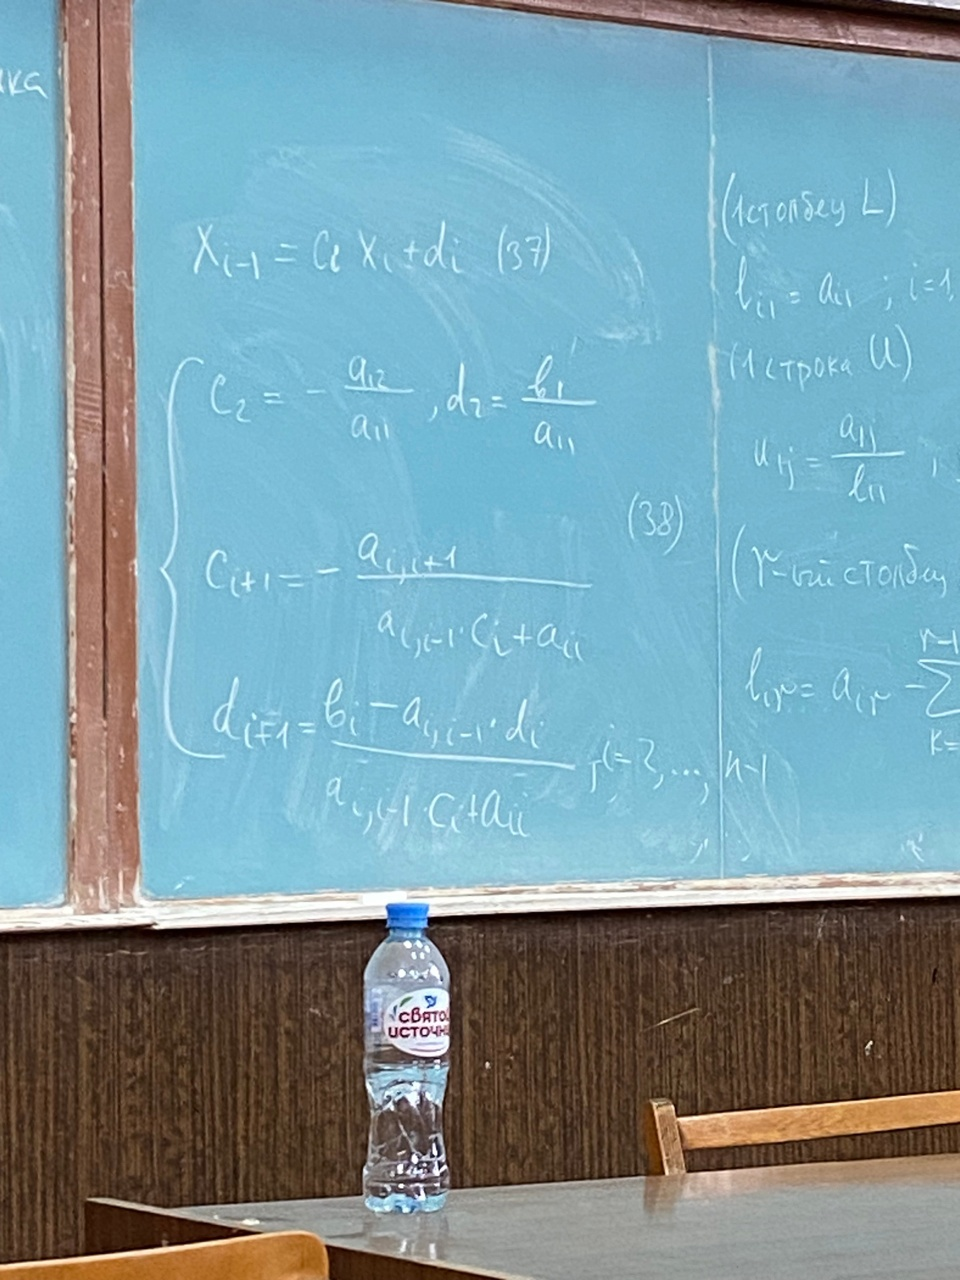 ка
X_{i-1} = C_i X_i + d_i (37)
C_2 = - a_{12} / a_{11} , d_2 = b_1 / a_{11}
(38)
C_{i+1} = - a_{i,i+1} / a_{i,i-1} · C_i + a_{ii}
d_{i+1} = b_i - a_{i,i-1} · d_i / a_{i,i-1} · C_i + a_{ii} , i = 2, ..., n-1
(1 столбец L)
l_{i1} = a_{i1} ; i = 1,
(1 строка U)
u_{1j} = a_{1j} / l_{11} ,
(r-ый столбец
l_{i,r} = a_{i,r} - Σ r-1 k=
СВЯТО
ИСТОЧН